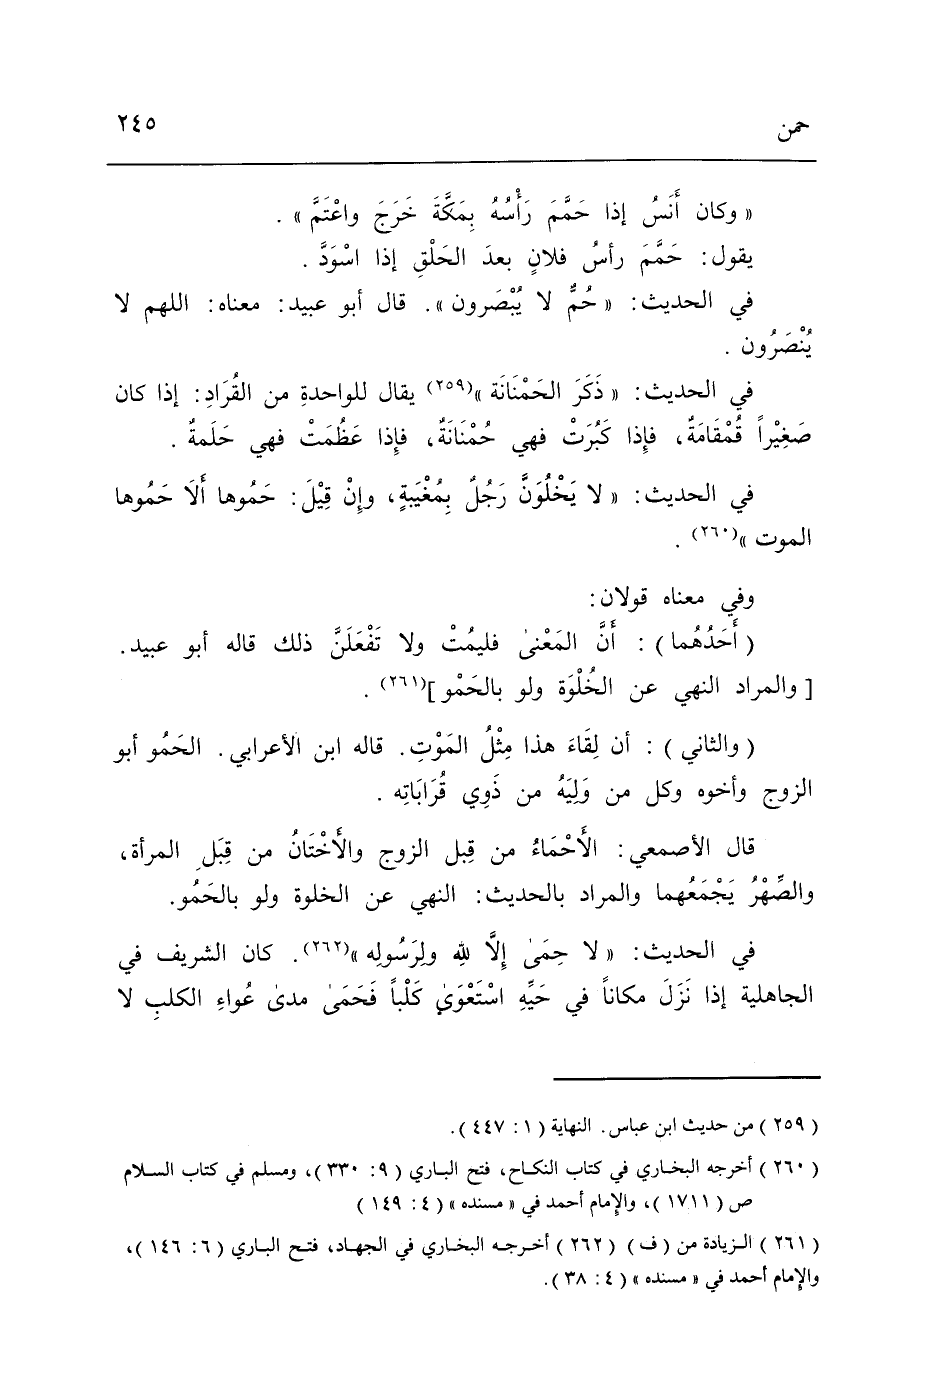 حمن ٢٤٥
« وكان أَنَسُ إذا حَمَّمَ رَأْسُهُ بِمَكَّةَ خَرَجَ واعْتَمَّ » .
يقول: حَمَّمَ رأسُ فلانٍ بعدَ الحَلْقِ إذا اسْوَدَّ .
في الحديث: « حُمٌّ لا يُبْصَرون ». قال أبو عبيد: معناه: اللهم لا
يُنْصَرُون .
في الحديث: « ذَكَرَ الحَمْنَانَة »(٢٥٩) يقال للواحدةِ من القُرَادِ: إذا كان
صَغِيْراً قُمْقَامَةٌ، فإِذا كَبُرَتْ فهي حُمْنَانَةٌ، فإِذا عَظُمَتْ فهي حَلَمةٌ .
في الحديث: « لا يَخْلُوَنَّ رَجُلٌ بِمُغْيَبةٍ، وإِنْ قِيْلَ: حَمُوها أَلَا حَمُوها
الموت »(٢٦٠) .
وفي معناه قولان:
( أَحَدُهُما ) : أَنَّ المَعْنىٰ فليمُتْ ولا تَفْعَلَنَّ ذلك قاله أبو عبيد.
[ والمراد النهي عن الخُلْوَة ولو بالحَمْو ](٢٦١) .
( والثاني ) : أن لِقَاءَ هذا مِثْلُ المَوْتِ. قاله ابن الأعرابي. الحَمُو أبو
الزوج وأخوه وكل من وَلِيَهُ من ذَوِي قُرَابَاتِه .
قال الأصمعي: الأَحْمَاءُ من قِبل الزوج والأَخْتَانُ من قِبَلِ المرأة،
والصِّهْرُ يَجْمَعُهما والمراد بالحديث: النهي عن الخلوة ولو بالحَمُو.
في الحديث: « لا حِمَىٰ إِلَّا لله ولِرَسُولِه »(٢٦٢). كان الشريف في
الجاهلية إذا نَزَلَ مكاناً في حَيِّهِ اسْتَعْوَىٰ كَلْباً فَحَمَىٰ مدىٰ عُواءِ الكلبِ لا
( ٢٥٩ ) من حديث ابن عباس. النهاية ( ١ : ٤٤٧ ).
( ٢٦٠ ) أخرجه البخاري في كتاب النكاح، فتح الباري ( ٩ : ٣٣٠ )، ومسلم في كتاب السلام
ص ( ١٧١١ )، والإمام أحمد في « مسنده » ( ٤ : ١٤٩ )
( ٢٦١ ) الزيادة من ( ف ) ( ٢٦٢ ) أخرجه البخاري في الجهاد، فتح الباري ( ٦ : ١٤٦ )،
والإمام أحمد في « مسنده » ( ٤ : ٣٨ ).